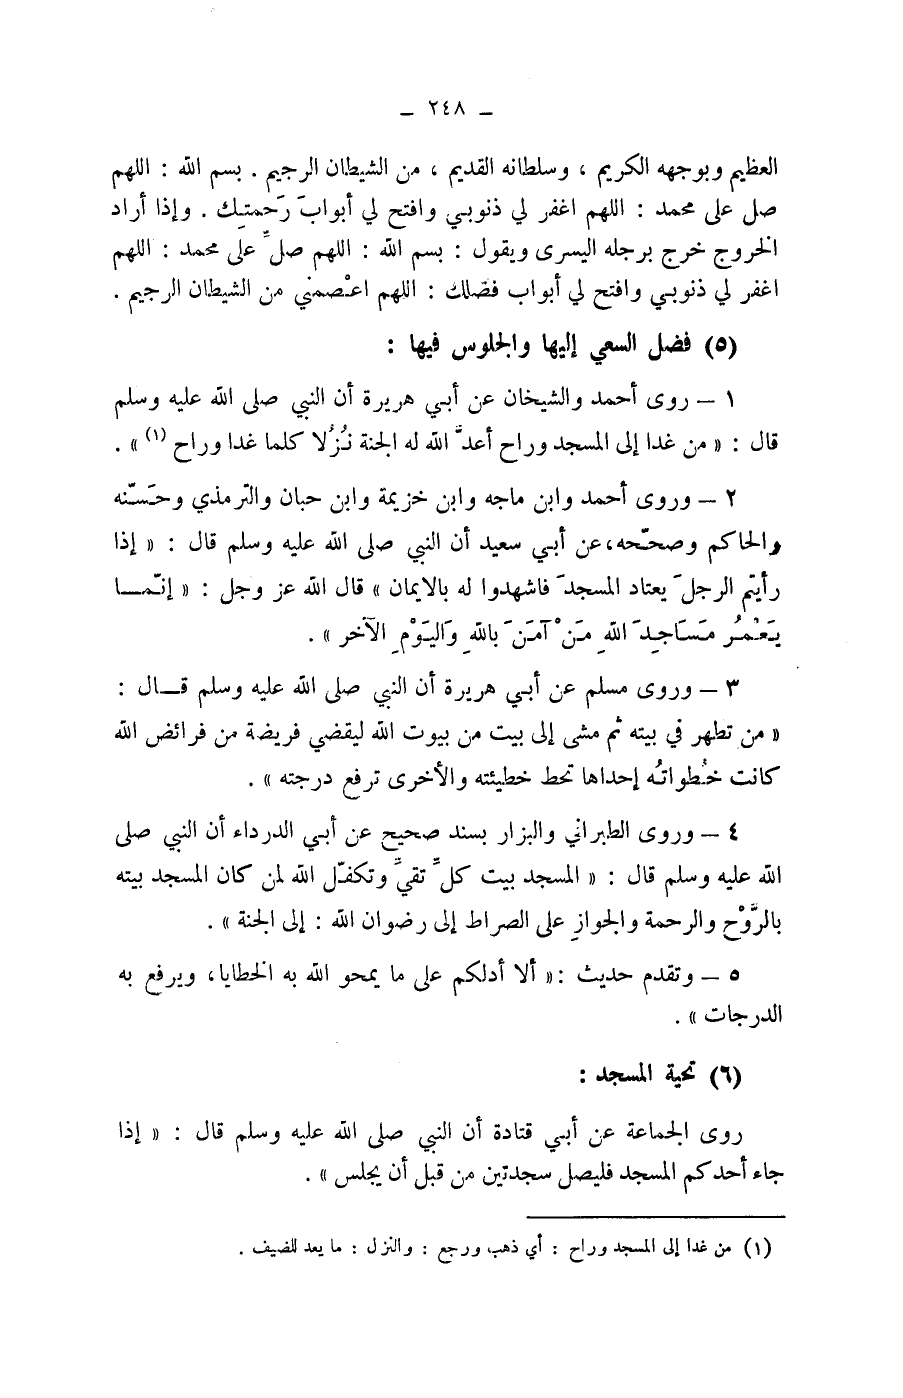 ـ ٢٤٨ ـ
العظيم وبوجهه الكريم ، وسلطانه القديم ، من الشيطان الرجيم . بسم الله : اللهم
صل على محمد : اللهم اغفر لي ذنوبي وافتح لي أبوابَ رَحمتِك . وإذا أراد
الخروج خرج برجله اليسرى ويقول : بسم الله : اللهم صلِّ على محمد : اللهم
اغفر لي ذنوبي وافتح لي أبواب فضلك : اللهم اعْصمني من الشيطان الرجيم .
(٥) فضل السعي إليها والجلوس فيها :
١ ــ روى أحمد والشيخان عن أبي هريرة أن النبي صلى الله عليه وسلم
قال : « من غدا إلى المسجد وراح أعدَّ الله له الجنة نُزُلا كلما غدا وراح (١) » .
٢ ــ وروى أحمد وابن ماجه وابن خزيمة وابن حبان والترمذي وحَسّنه
والحاكم وصححّه،عن أبي سعيد أن النبي صلى الله عليه وسلم قال : « إذا
رأيتم الرجلَ يعتاد المسجدَ فاشهدوا له بالايمان » قال الله عز وجل : « إنّمــا
يَعْمُرُ مَسَاجِدَ اللهِ مَنْ آمَنَ بِاللهِ وَاليَوْمِ الآخر » .
٣ ــ وروى مسلم عن أبي هريرة أن النبي صلى الله عليه وسلم قــال :
« من تطهر في بيته ثم مشى إلى بيت من بيوت الله ليقضي فريضة من فرائض الله
كانت خُطواتُه إحداها تحط خطيئته والأخرى ترفع درجته » .
٤ ــ وروى الطبراني والبزار بسند صحيح عن أبي الدرداء أن النبي صلى
الله عليه وسلم قال : « المسجد بيت كلِّ تقيِّ وتكفّل الله لمن كان المسجد بيته
بالرَّوْحِ والرحمة والجوازِ على الصراط إلى رضوان الله : إلى الجنة » .
٥ ــ وتقدم حديث :« ألا أدلكم على ما يمحو الله به الخطايا، ويرفع به
الدرجات » .
(٦) تحية المسجد :
روى الجماعة عن أبي قتادة أن النبي صلى الله عليه وسلم قال : « إذا
جاء أحدكم المسجد فليصل سجدتين من قبل أن يجلس » .
(١) من غدا إلى المسجد وراح : أي ذهب ورجع : والنزل : ما يعد للضيف .